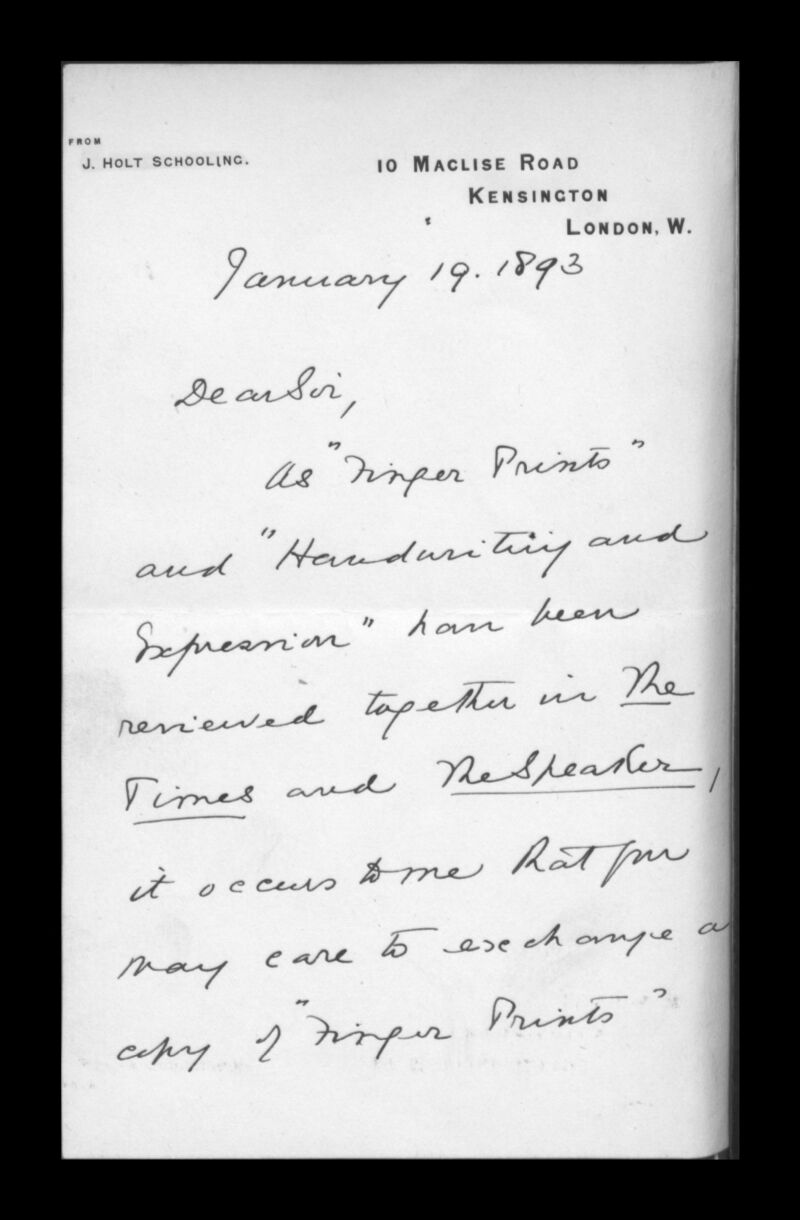 FROM
J. HOLT SCHOOLING.
10 MACLISE ROAD
KENSINGTON
LONDON, W.
January 19. 1893
Dear Sir,
As "Finger Prints"
and "Handwriting and
Expression" have been
reviewed together in The
Times and The Speaker,
it occurs to me that you
may care to exchange a
copy of "Finger Prints"